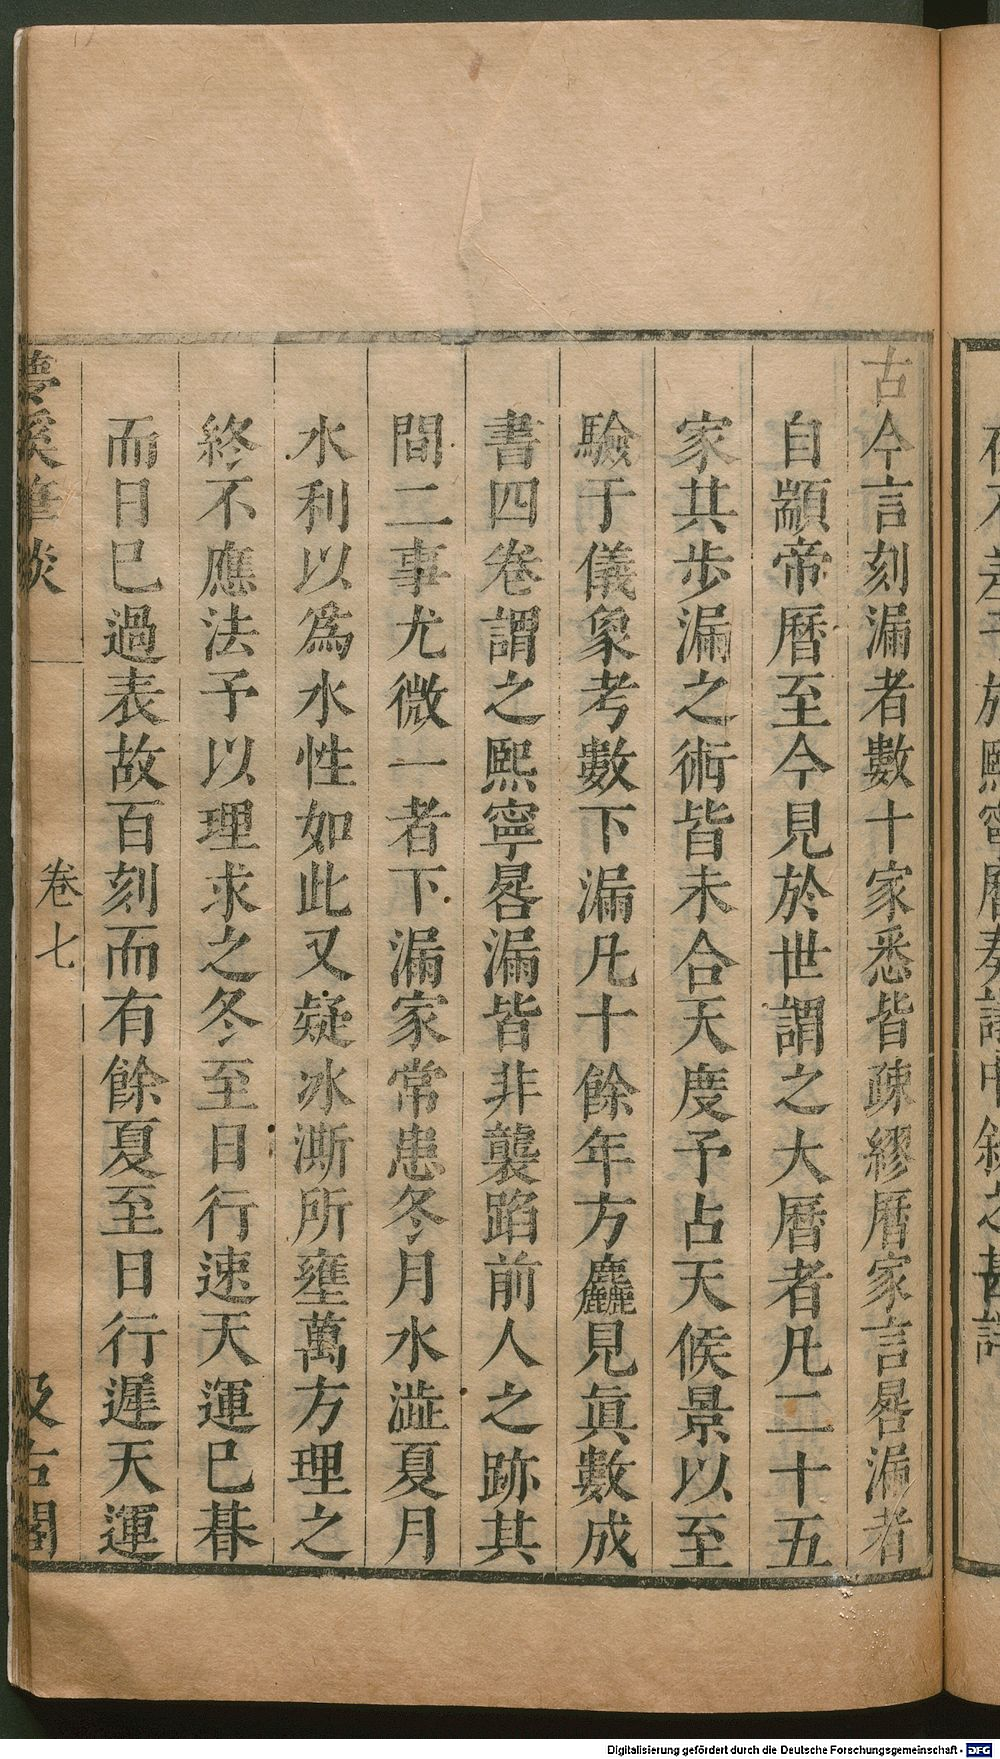 古今言刻漏者數十家悉皆疎繆曆家言晷漏者
自顓帝曆至今見於世謂之大曆者凡二十五
家其步漏之術皆未合天度予占天候景以至
驗于儀象考數下漏凡十餘年方麤見眞數成
書四卷謂之熙寧晷漏皆非襲蹈前人之跡其
間二事尤微一者下漏家常患冬月水澁夏月
水利以爲水性如此又疑冰澌所壅萬方理之
終不應法予以理求之冬至日行速天運巳朞
而日巳過表故百刻而有餘夏至日行遲天運
夢溪筆談
卷七
汲古閣
Digitalisierung gefördert durch die Deutsche Forschungsgemeinschaft - DFG